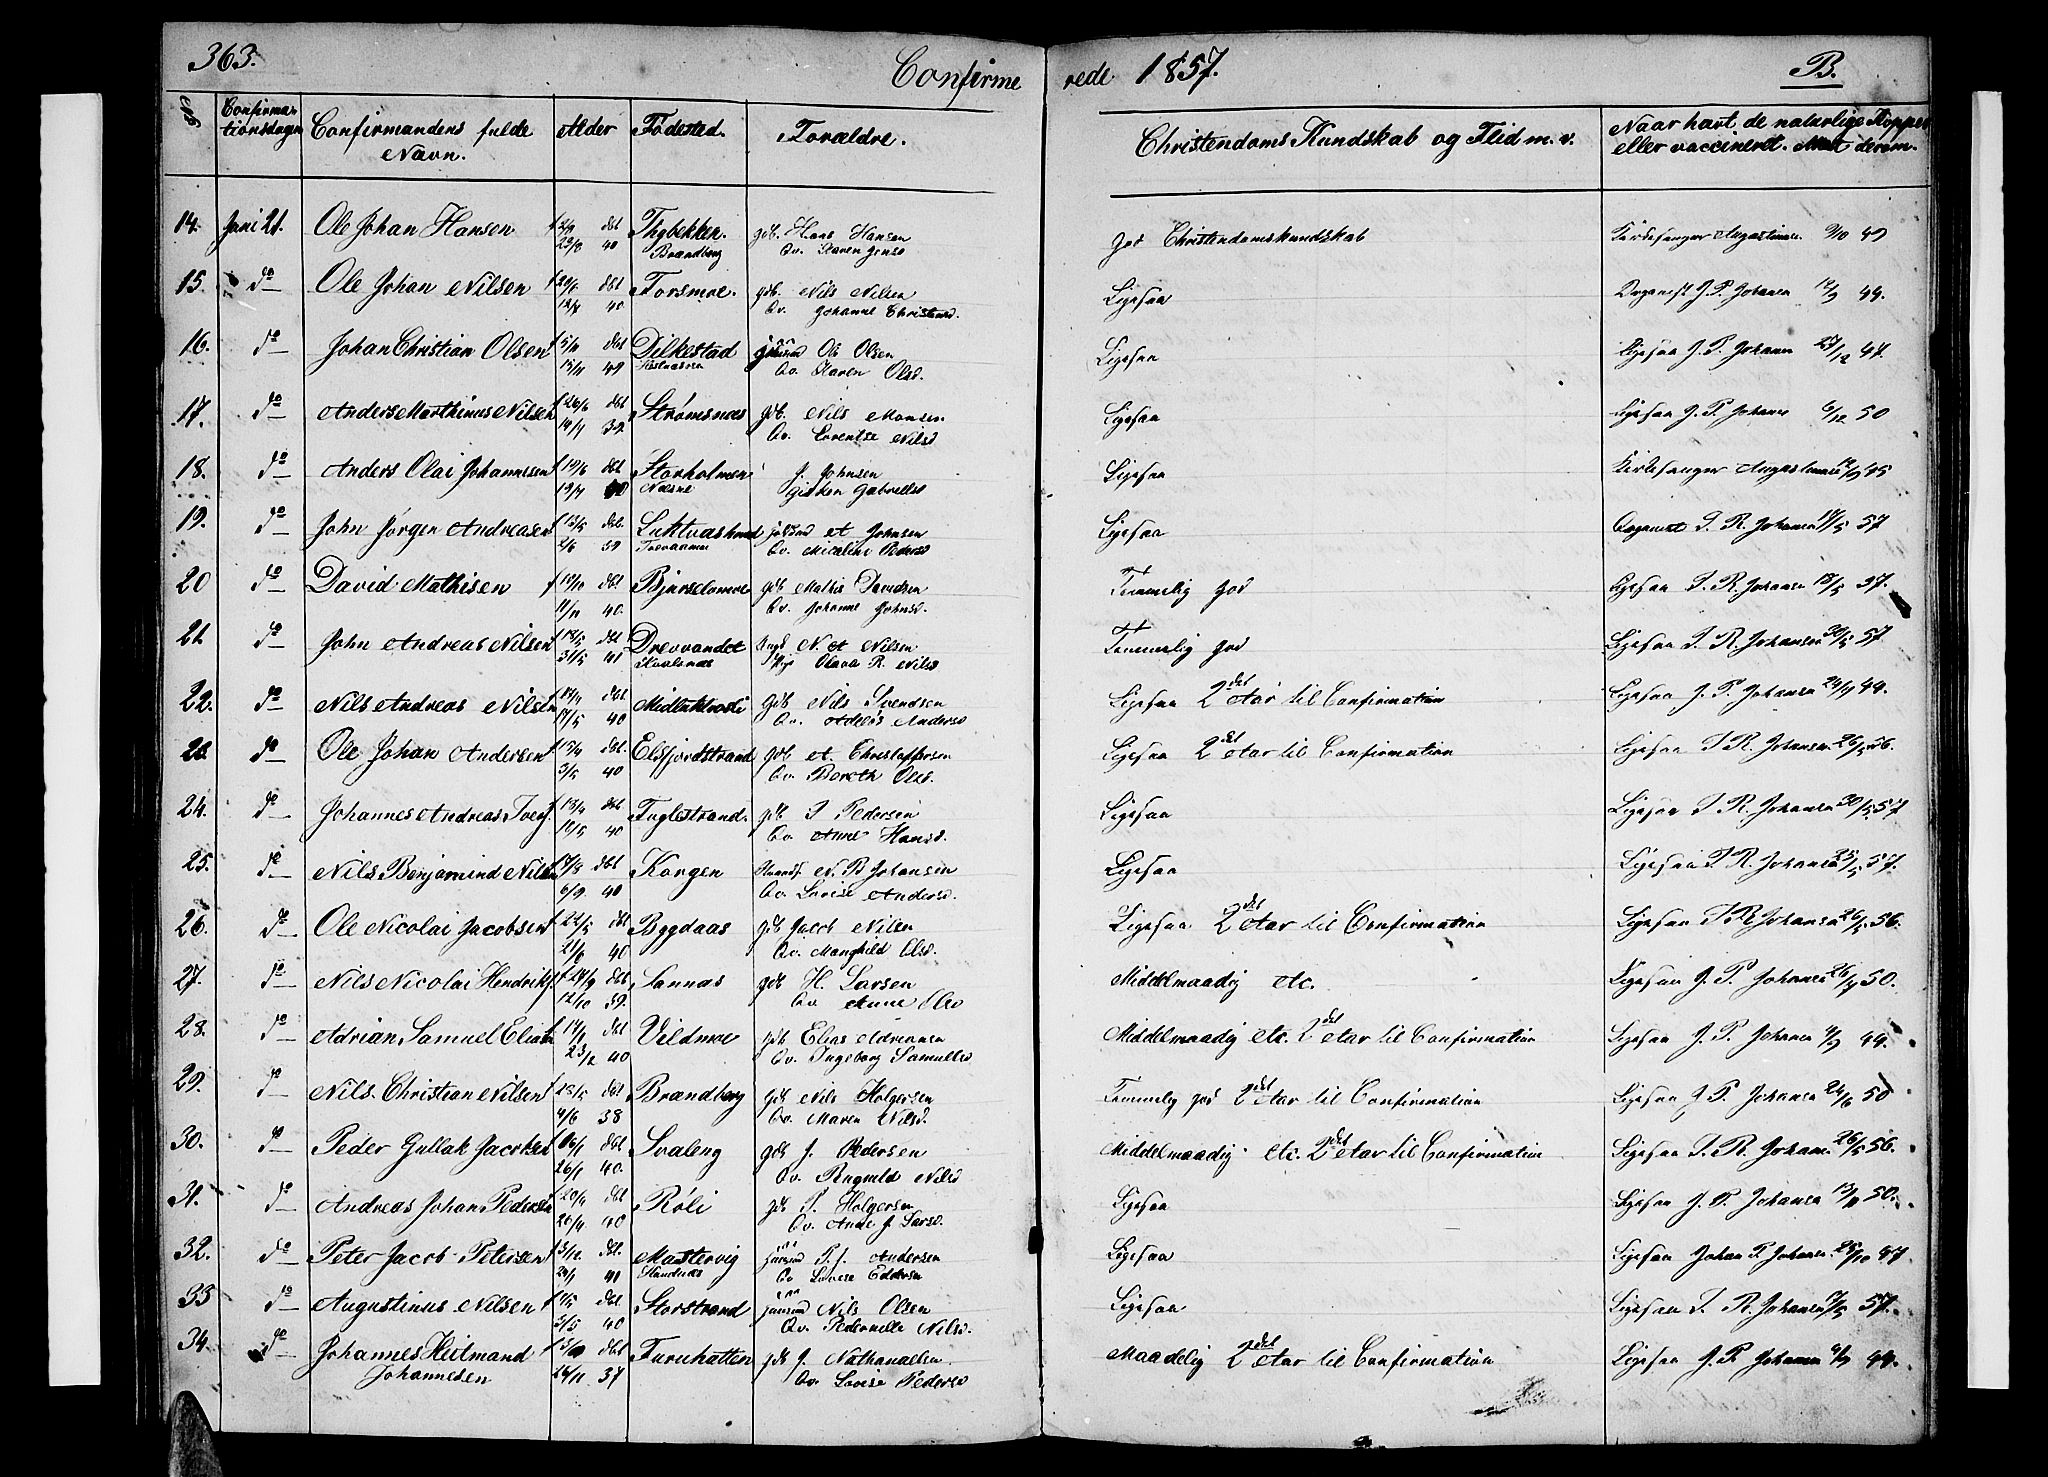 363.
Confirmerede 1857.
B.
No
Confirmationsdagn
Confirmandens fulde Navn.
Alder
Fødested.
Forældre.
Christendoms Kundskab og Flid m. v.
Naar havt de naturlige Kopper eller vaccineret. derom.
14. Juni 21. Ole Johan Hansen f døbt 40 Brændberg gdb. Hans Hansen Qv. Karen Jensd god Christendomskundskab Kirkesanger Augustinus 9/10 49
15. do Ole Johan Nilsen f døbt 40 Forsmoe. gdb. Nils Nilsen Qv. Johanne Ligesaa Organist J. P. Johansen 49.
16. do Johan Christian Olsen f 5/11 døbt 15/11 Dilkestad Ole Olsen Qv. Karen Olsd. Ligesaa Ligesaa J. P. Johansen 27/12 47.
17. do Anders Marthinus Nilsen f 26/6 døbt 14/7 39 Strømsnæs gdb. Nils Monsen Qv. Lorentse Nilsd Ligesaa Ligesaa J. P. Johansen 6/12 50
18. do Anders Olai Johannesen f 19/6 døbt 19/7 Storholmen Næsne J. Johnsen Gidken Gabrielsd Ligesaa Kirkesanger Augustinus 45
19. do John Jørgen Andreasen f 13/5 døbt. 2/6 39 A Johnsen Qv. Micaline Pedersd Ligesaa Organist I. R. Johansen 18/5 57
20 do David Mathisen f 19/10 døbt 11/11 40. Bjurselvmoe gdb Mathis Davidsen Qv. Johanne Johnsd. Temmelig god Ligesaa I. R. Johansen 18/5 57.
21 do John Andreas Nilsen f 18/5 døbt 31/5 41 Drevvandet N. A Nilsen Olava R. Nilsd Temmelig god Ligesaa I. R. Johansen 30/5 57.
22. do Nils Andreas Nilsen f døbt 17/5 40 gdb Nils Svendsen Qv. Andersd Ligesaa 2det Aar til Confirmation Ligesaa J. P. Johansen 49.
23. do Ole Johan Andersen f 13/4 døbt. 3/5 40 Elsfjordstrand gdb A. Christoffersen Qv. Bereth Olsd. Ligesaa 2det Aar til Confirmation Ligesaa I R. Johansen 26/5 56.
24. do Johannes Andreas Iversf. f 13/4 døbt 10/5 40 Fuglestrand. gdb I Pedersen Qv. Anne Hansd. Ligesaa Ligesaa I R. Johansen 30/5 57
25. do Nils Benjamind Nilsen f 17/8 døbt 6/9 40 Korgen N. B Johansen Qv. Lovise Andersd. Ligesaa Ligesaa I R. Johansen 25/5 57.
26. do Ole Nicolai Jacobsen f 22/5 døbt 21/6 40 Bygdaas gdb Jacob Nilsen Qv. Manghild Olsd. Ligesaa 2det Aar til Confirmation Ligesaa I R. Johansen 26/5 56.
27. do Nils Nicolai Hendriksf. f 24/9 døbt 12/10 39. Sannæs gdb H. Larsen Qv Anne Olsd Middelmaadig etc. Ligesaa J. P. Johansen 50.
28. do Adrian Samuel Eliasen f døbt 23/2 40 Vildmoe gdb Elias Adriansen Qv. Ingeborg Samuelsd Middelmaadig etc. 2det Aar til Confirmation Ligesaa J. P. Johansen 49.
29. do Nils Christian Nilsen f 23/5 døbt 4/6 38 Brændberg gdb Nils Holgersen Qv. Maren Nilsd. Temmelig god 2det Aar til Confirmation Ligesaa J P. Johansen 24/6 50
30. do Peder Gullak Jacobsen f 6/1 døbt 26/1 40. Svaleng gdb J. Pedersen Qv. Ragnild Nilsd Middelmaadig etc. 2det Aar til Confirmation Ligesaa I. R. Johansen 26/5 56.
31. do Andreas Johan Pedersen f 20/4 døbt 26/4 40 Røli gdb P. Holgersen Qv. Ane J Larsd. Ligesaa Ligesaa J. P. Johansen 50.
32. do Peter Jacob Petersen f 3/12 døbt. 24/1 41 Mastervig Handnæs P. J. Andersen Qv Lovise Ligesaa Ligesaa Johan P. Johansen 28/10 47
33 do Augustinus Nilsen f døbt 3/5 40 Storstrand Nils Olsen Qv. Pedernelle Nilsd. Ligesaa Ligesaa I. R. Johansen 57.
34. do Johannes Heitmand Johannesen f døbt 26/11 37 Furuhatten gdb J. Nathanaelsen Qv. Lovise Pedersd Maadelig 2det Aar til Confirmation Ligesaa J. P. Johansen 49.